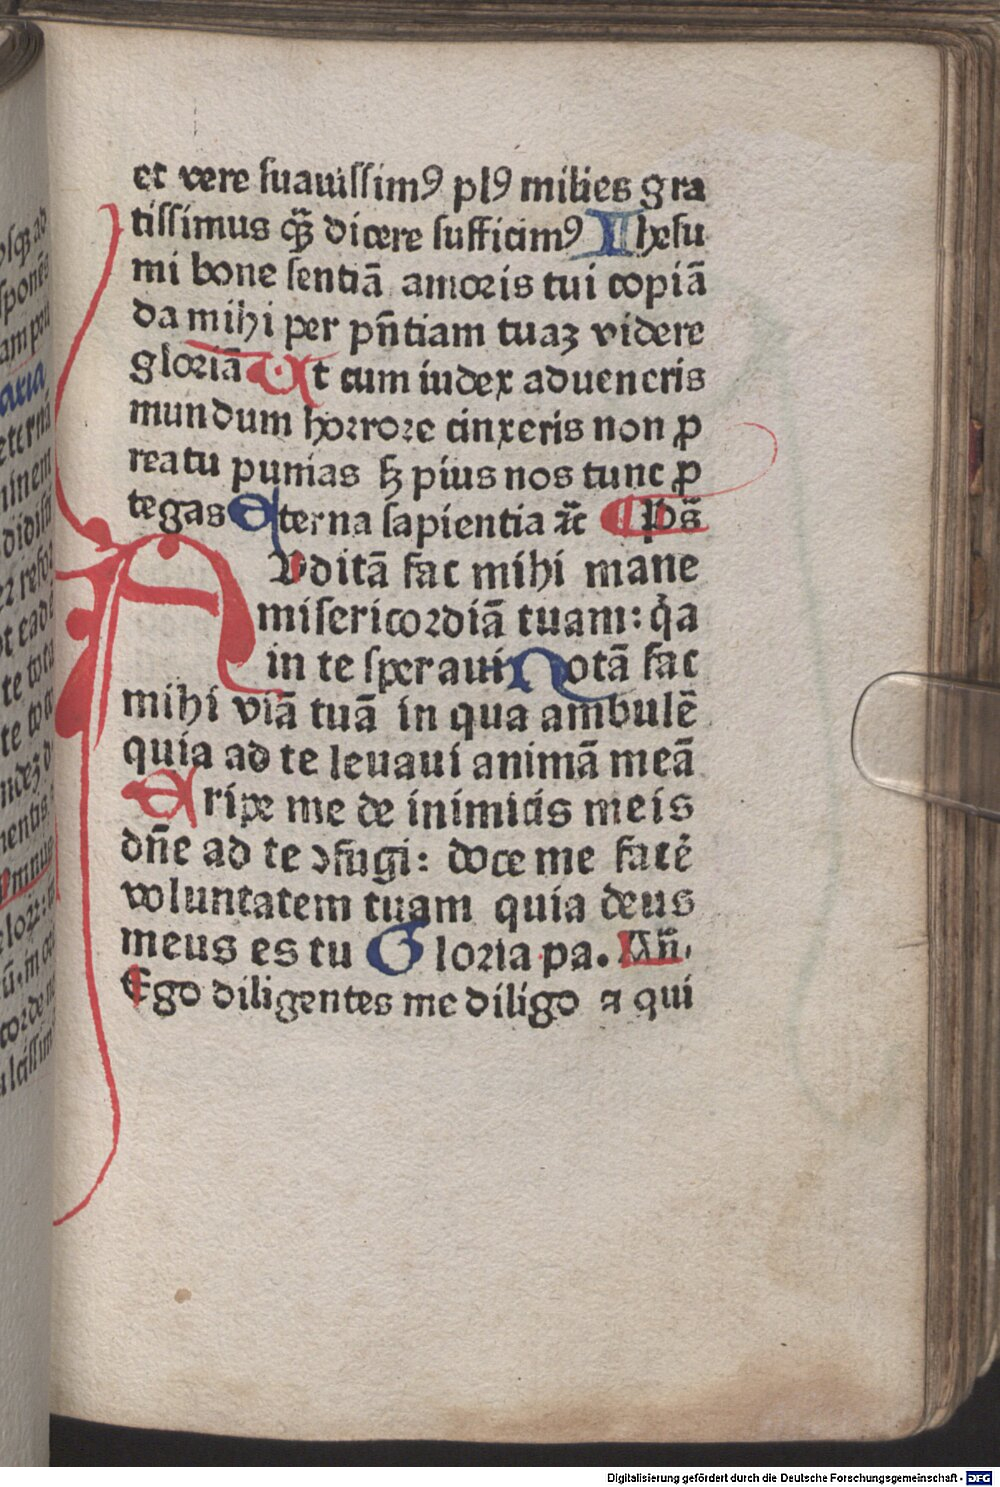 et vere ſuauiſſimꝰ plꝰ milies gra
tiſſimus q̄ꝫ dicere ſufficimꝰ Iheſu
mi bone ſentiā amoris tui copiā
da mihi per pn̄tiam tuaꝫ videre
gloriā Ut cum iudex adueneris
mundum horrore cinxeris non ꝓ
reatu punias ſꝫ pius nos tunc ꝓ
tegas Eterna ſapientia ⁊c̄ Ps̄
AUditā fac mihi mane
miſericordiā tuam: q̇a
in te ſperaui Notā fac
mihi viā tuā in qua ambulē
quia ad te leuaui animā meā
Eripe me de inimicis meis
dn̄e ad te ꝯfugi: doce me facė
voluntatem tuam quia deus
meus es tu Gloria pa. An̄.
Ego diligentes me diligo ⁊ qui
Digitalisierung gefördert durch die Deutsche Forschungsgemeinschaft - DFG